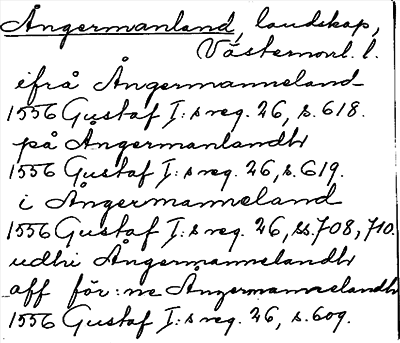 Ångermanland, landskap,
Västernorrl. l.
ifrå Ångermanneland
1556 Gustaf I:s reg. 26, s. 618.
på Ångermanlandh
1556 Gustaf I:s reg. 26, s. 619.
i Ångermanneland
1556 Gustaf I:s reg. 26, ss. 708, 710.
udhi Ångermannelandh
aff för:ne Ångermannelandh
1556 Gustaf I:s reg. 26, s. 609.